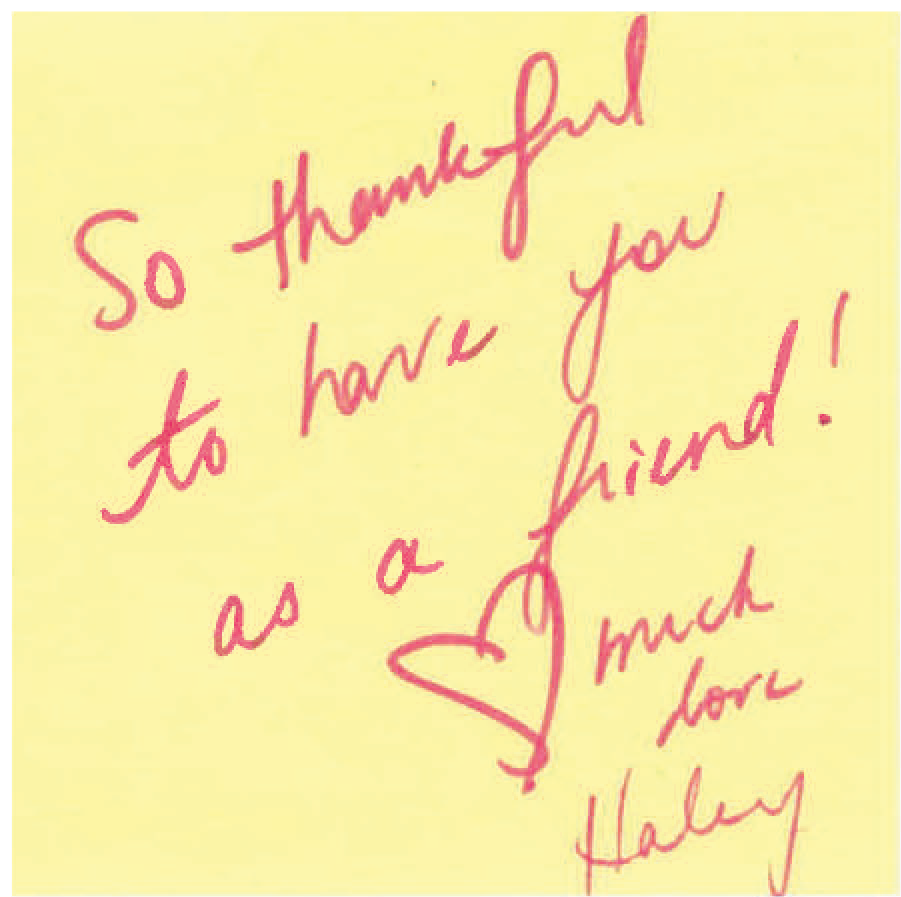 So thankful
to have you
as a friend!
much
love
Haley